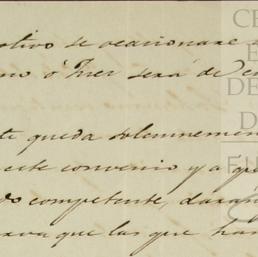 otivo se ocasionare a
no ó Juez será de
te queda solemnemen
este convenio y a que
do competente, daran
que las que han
CE
E
DE
D